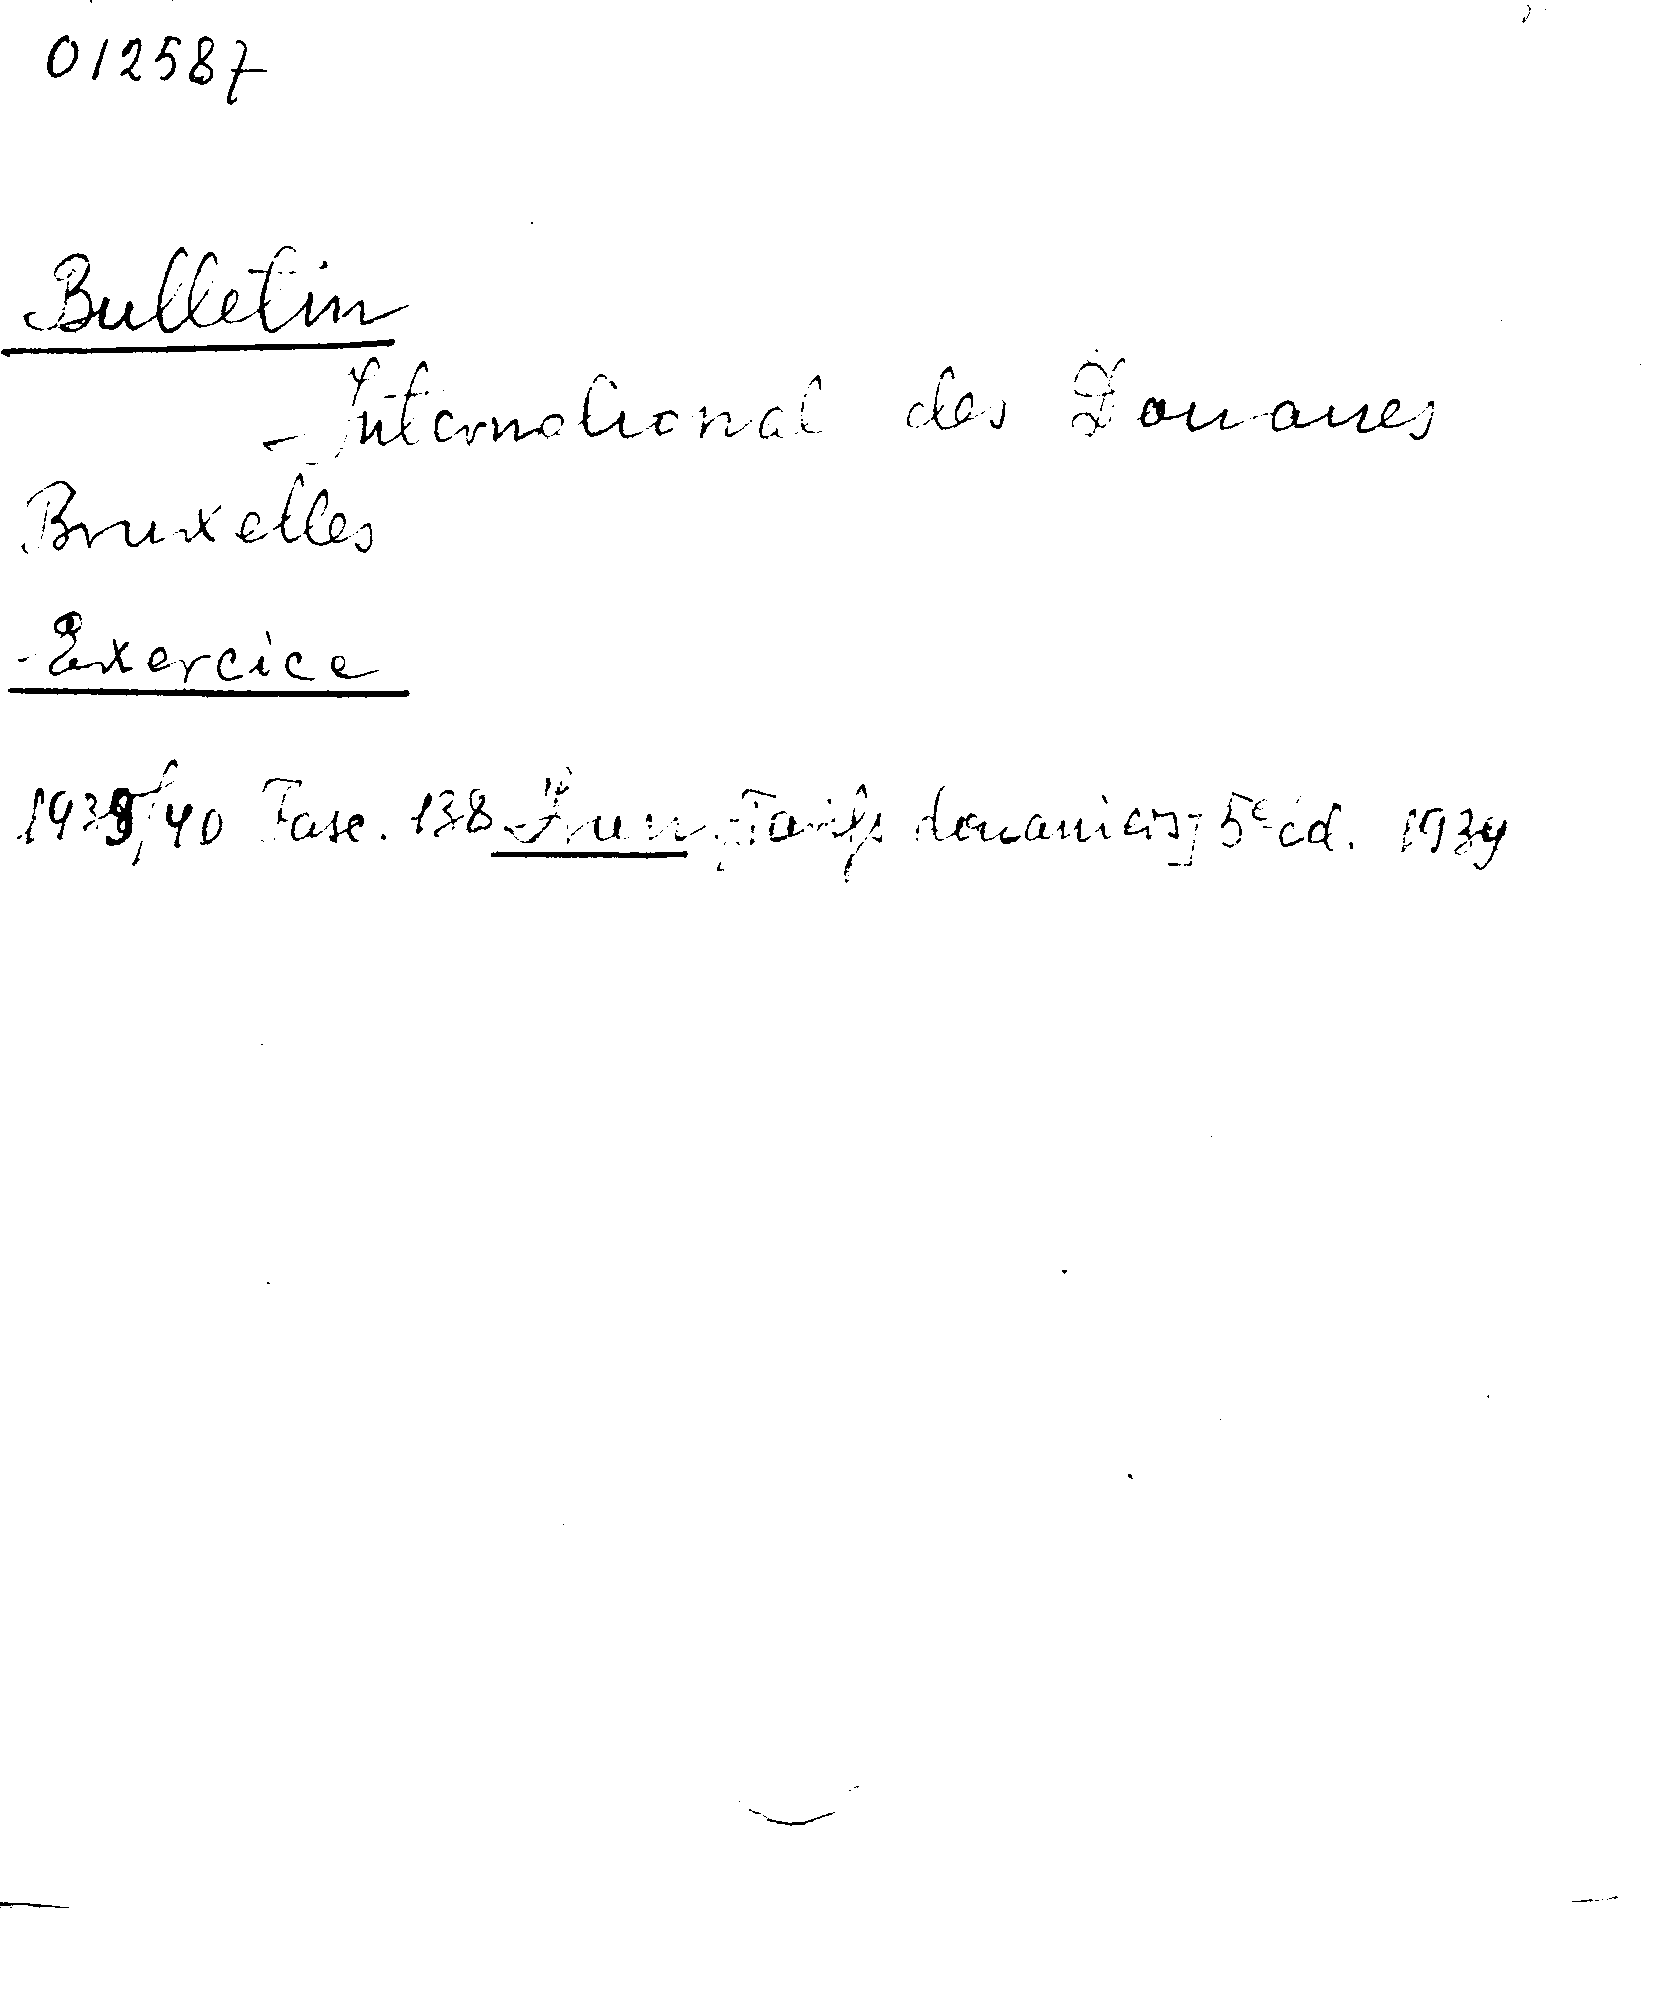 012587
Bulletin
- International des Douanes
Bruxelles
Exercice
1939/40 Fasc. 138 [Tarifs douaniers] 5e éd. 1939